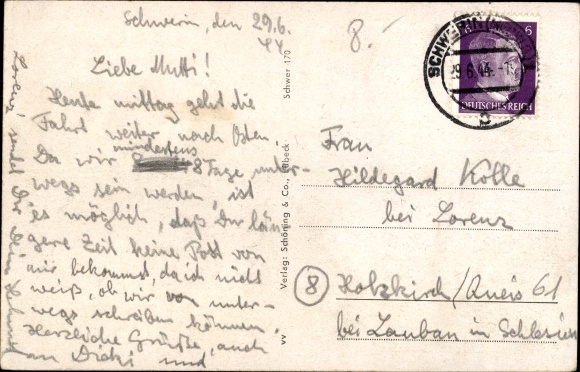 Schwerin, den 29.6.
44
Liebe Mutti!
Heute mittag geht die
Fahrt weiter nach Osten.
Da wir mindestens 8 Tage unter-
wegs sein werden, ist
es möglich, daß Du län-
gere Zeit keine Post von
mir bekommst, da ich nicht
weiß, ob wir von unter-
wegs schreiben können.
Herzliche Grüße, auch
an Dicki und
Lorenz' sendet Dir Dein
8.-
SCHWERIN
29.6.44.-1
6
DEUTSCHES REICH
Schwer 170
Verlag: Schöning & Co., Lübeck
VV
Frau
Hildegard Kolle
bei Lorenz
8 Holzkirch/Queis 61
bei Lauban in Schlesien